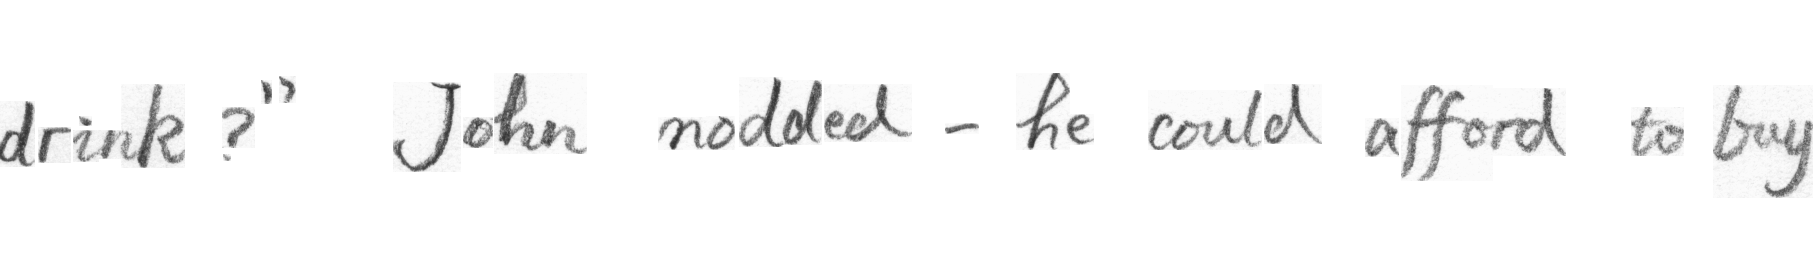 drink ?" John nodded - he could afford to buy